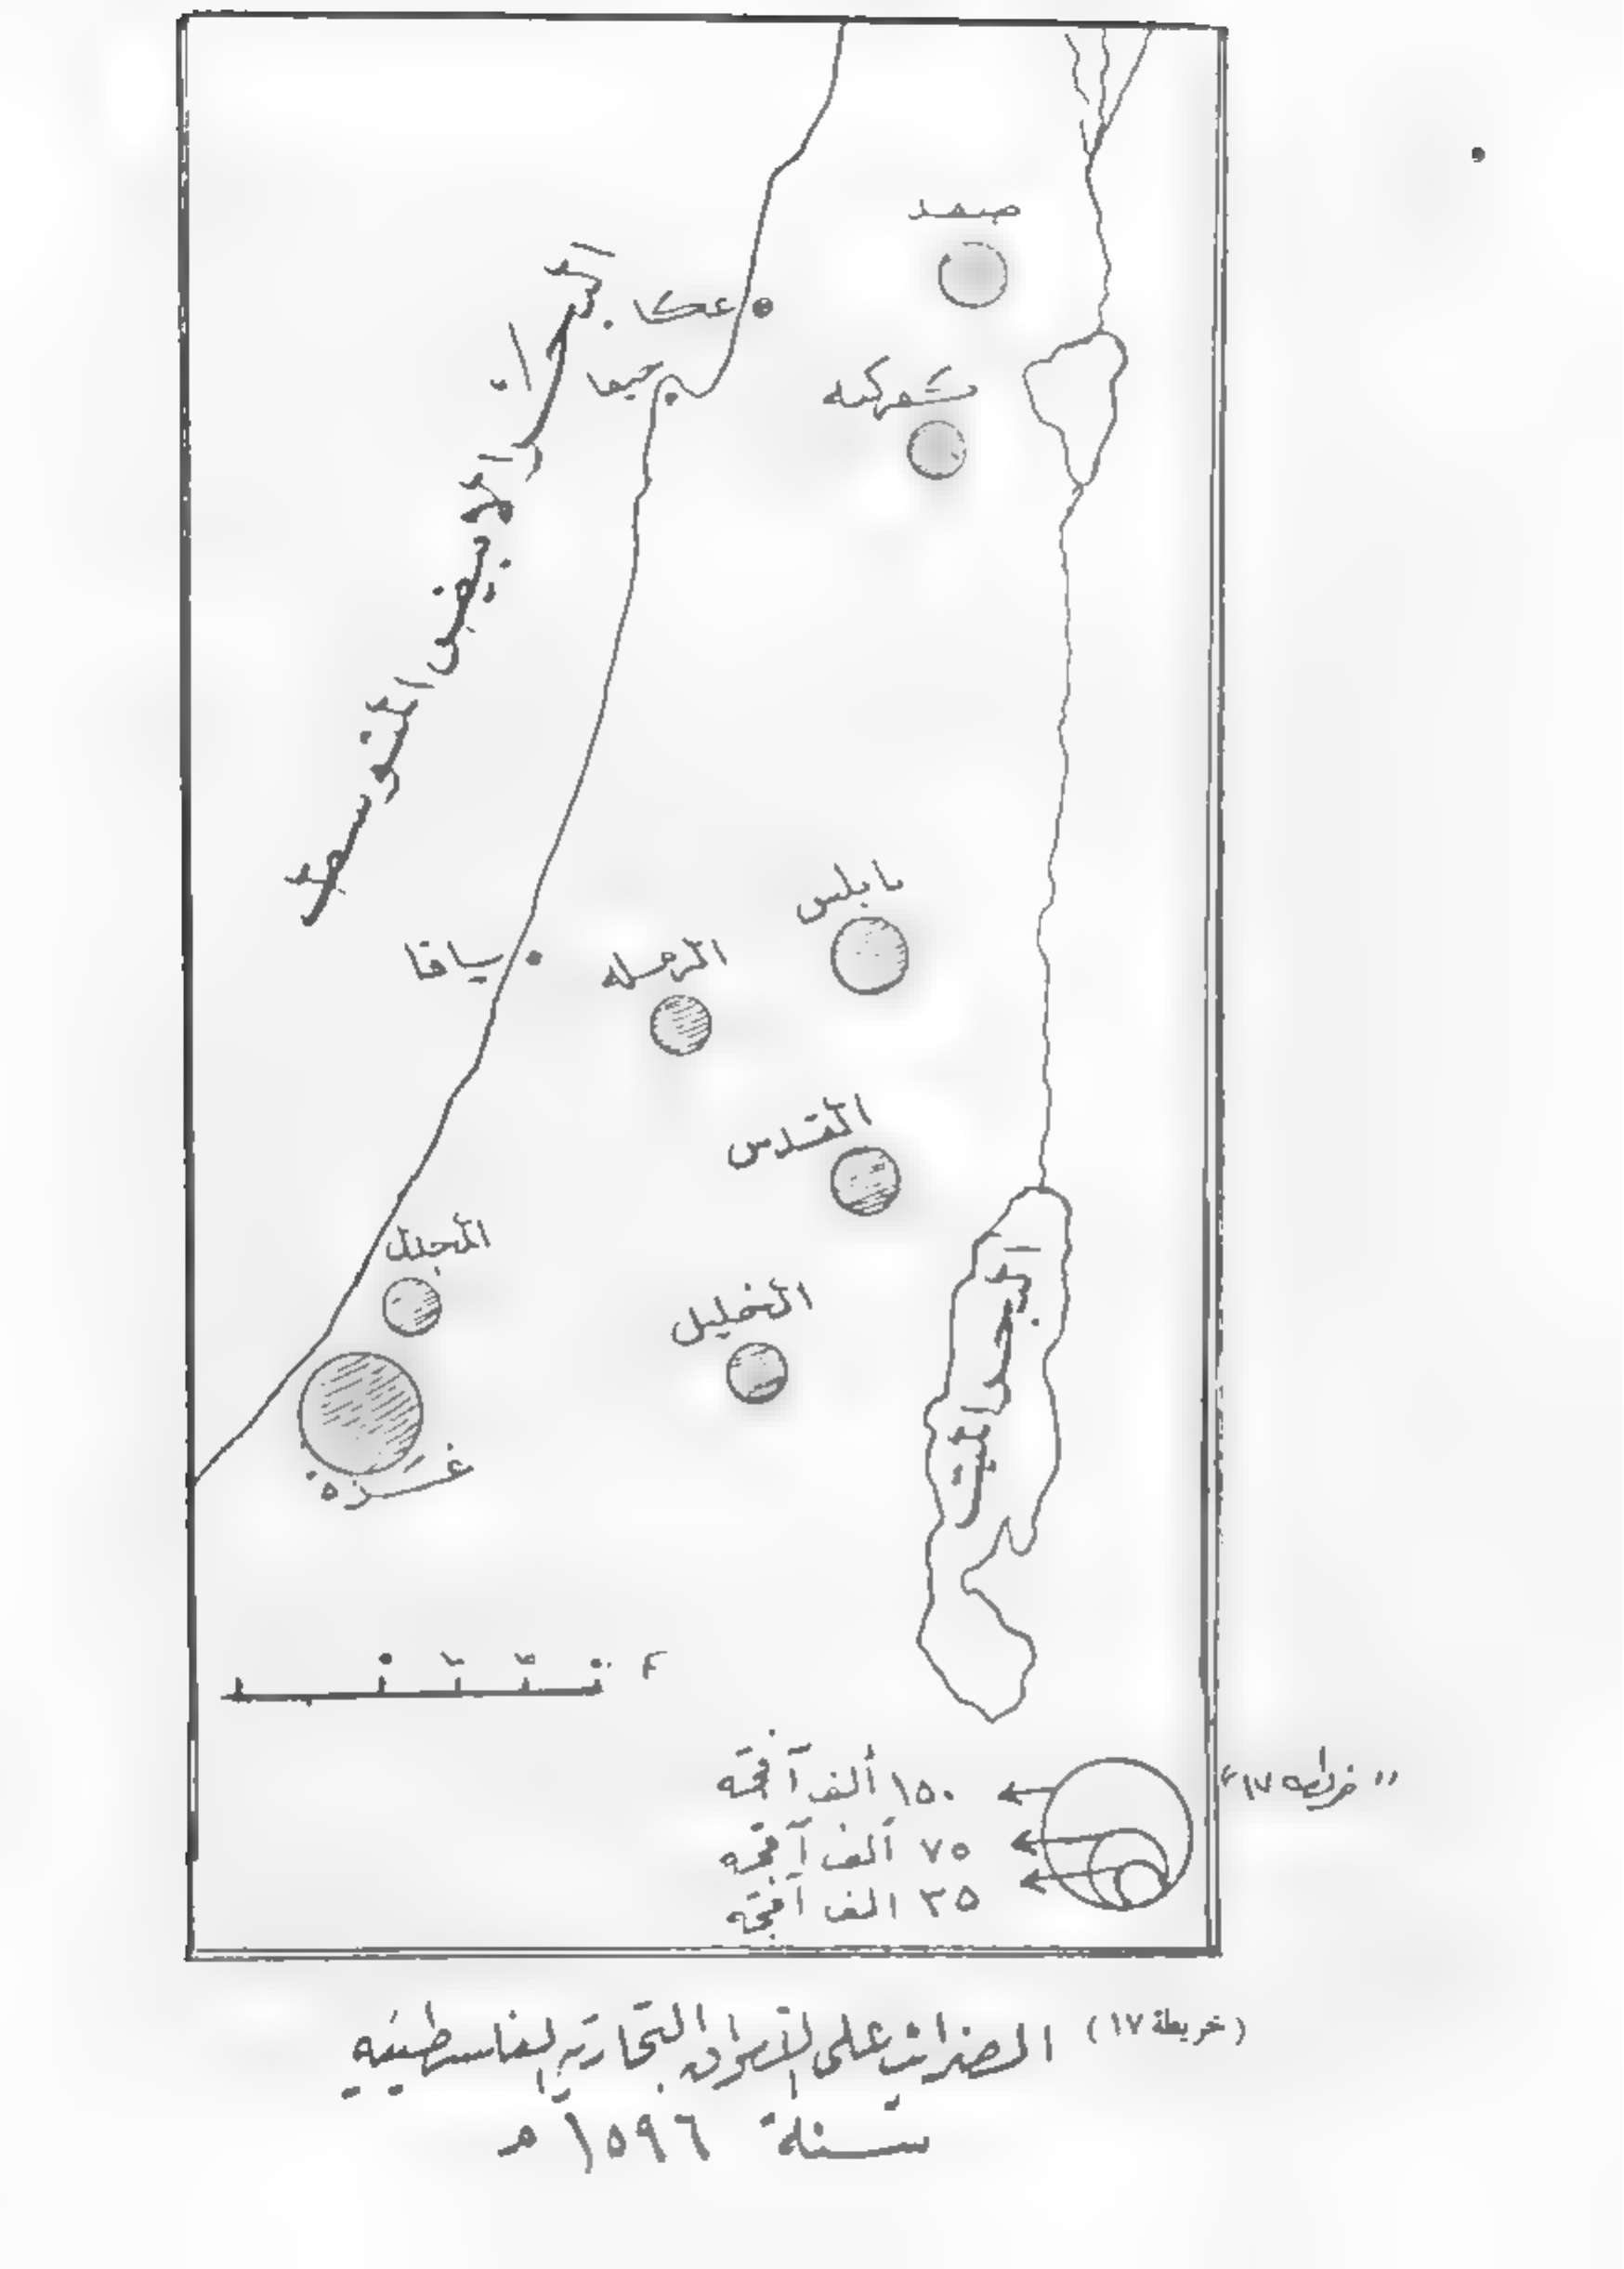 صفد
عكا
حيفا
كفركنه
البحر الابيض المتوسط
نابلس
يافا
الرمله
القدس
المجدل
الخليل
غزة
البحر الميت
١٥٠ ألف آقجه
٧٥ ألف آقجه
٣٥ الف آقجه
"خريطه ١٧"
(خريطة ١٧) الضرائب على الأسواق التجارية الفلسطينيه
سنة ١٥٩٦ م